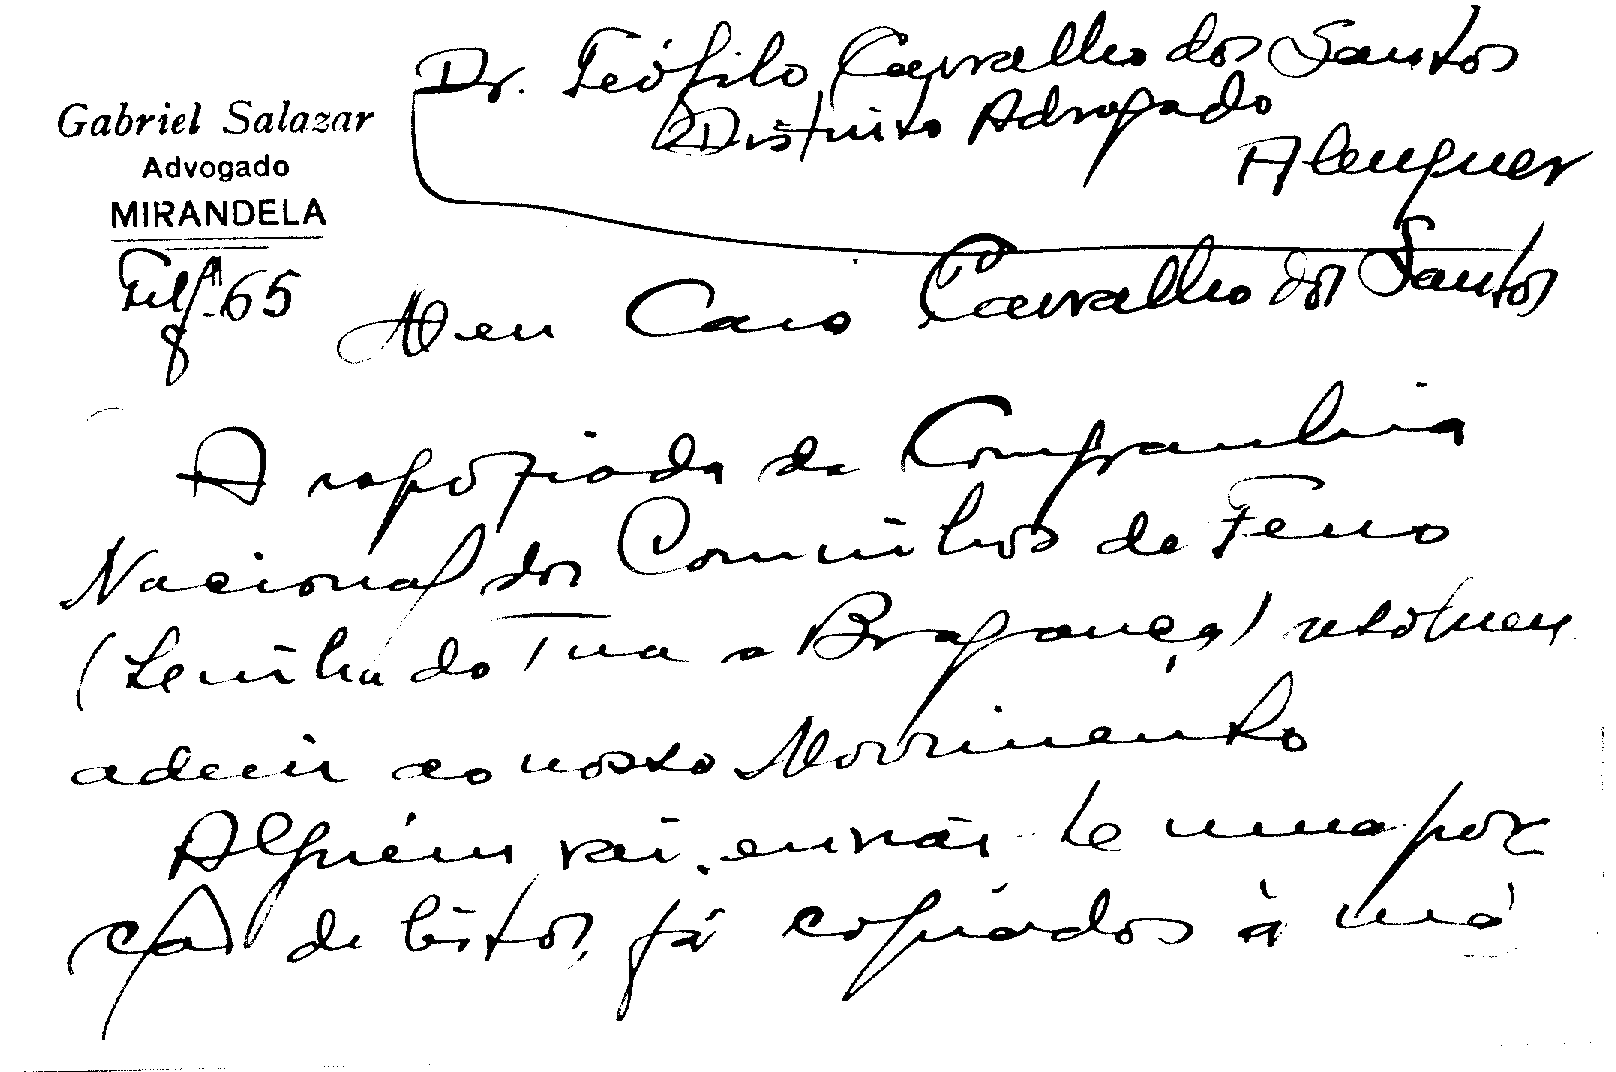 Gabriel Salazar
Advogado
MIRANDELA
Telf. 65
Dr. Teófilo Carvalho dos Santos
Distinto Advogado
Alenquer
Meu Caro Carvalho dos Santos
A rapoziada da Companhia
Nacional dos Caminhos de Ferro
(Linha do Tua a Bragança) resolveu
aderir ao nosso Movimento
Alguém vai enviar-te uma por
ção de listas, já copiados à má